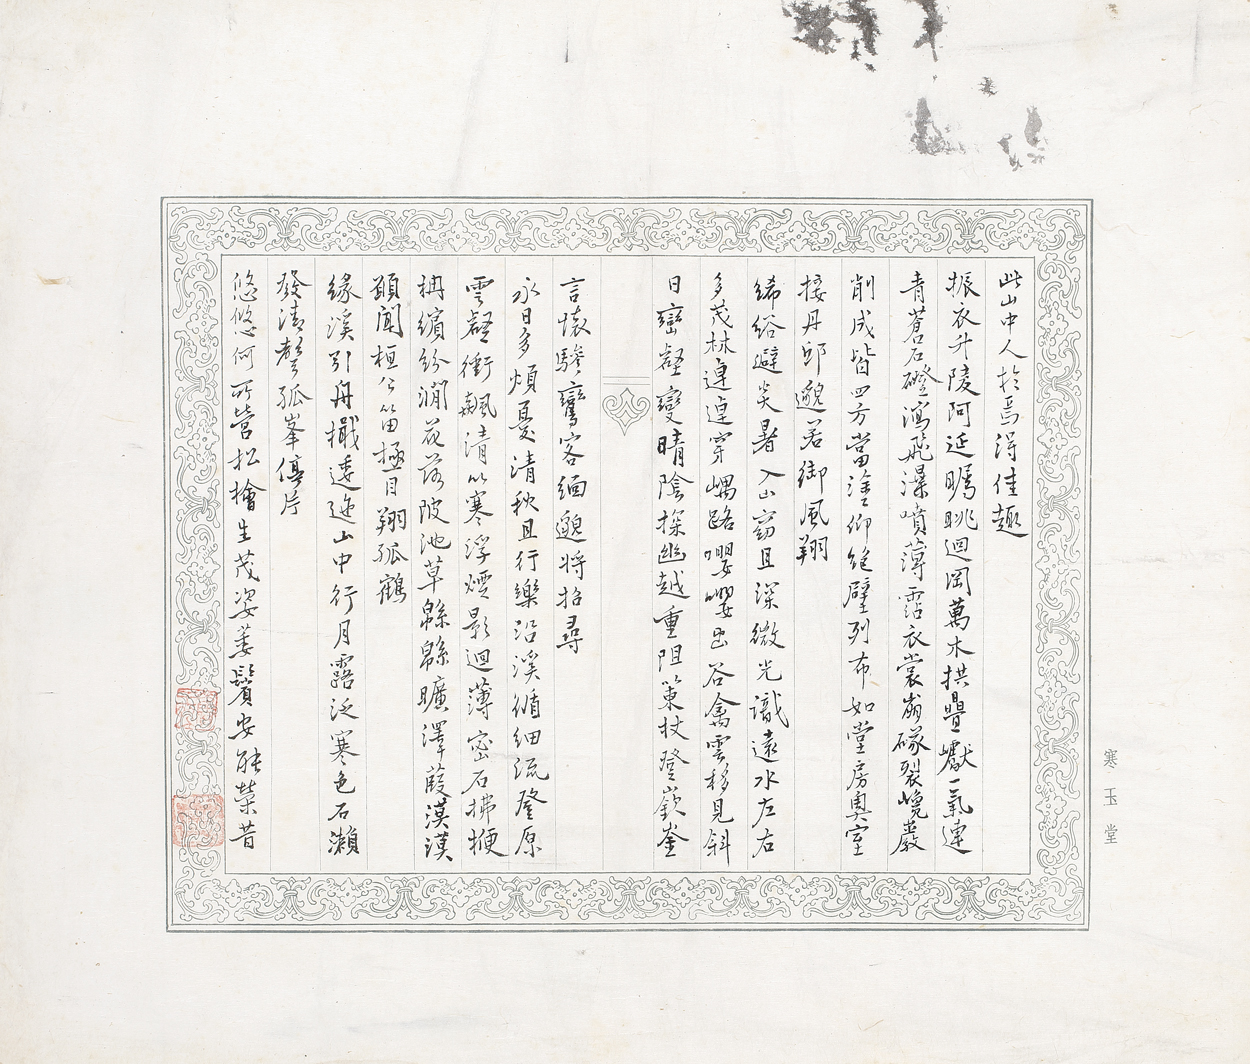 此山中人於焉得佳趣
振衣升陵阿延矚眺迴岡萬木拱疊巘一氣連
青蒼石磴瀉飛瀑噴薄霑衣裳崩磙裂巉巖
削成皆四方當塗仰絕壁列布如堂房奧室
接丹邱邈若御風翔
絺綌避炎暑入山窈且深微光識遠水左右
多茂林連連穿嵎路嚶嚶出谷禽雲移見斜
日巒壑變晴陰探幽越重阻策杖登嶔崟
言懷驂鸞客緬邈將招尋
永日多煩憂清秋且行樂沿溪循細流登原
雲壑衝飆清以寒浮煙影迴薄密石拂梗
枏繽紛澗花落陂池草緜緜曠澤葭漠漠
顧聞桓公笛極目翔孤鶴
緣溪引舟檝逶迤山中行月露泛寒色石瀨
發清聲孤峯停片
悠悠何所營松檜生茂姿萎鬢安能榮昔
寒玉堂